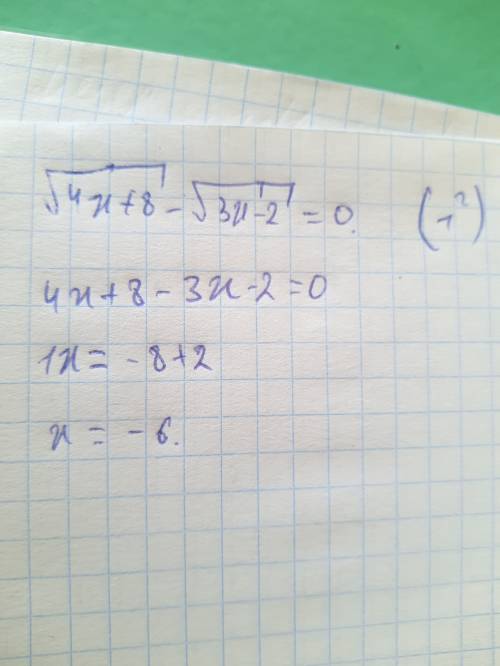 √4x+8 - √3x-2 = 0. (1²)
4x+8 - 3x-2 = 0
1x = -8+2
x = -6.